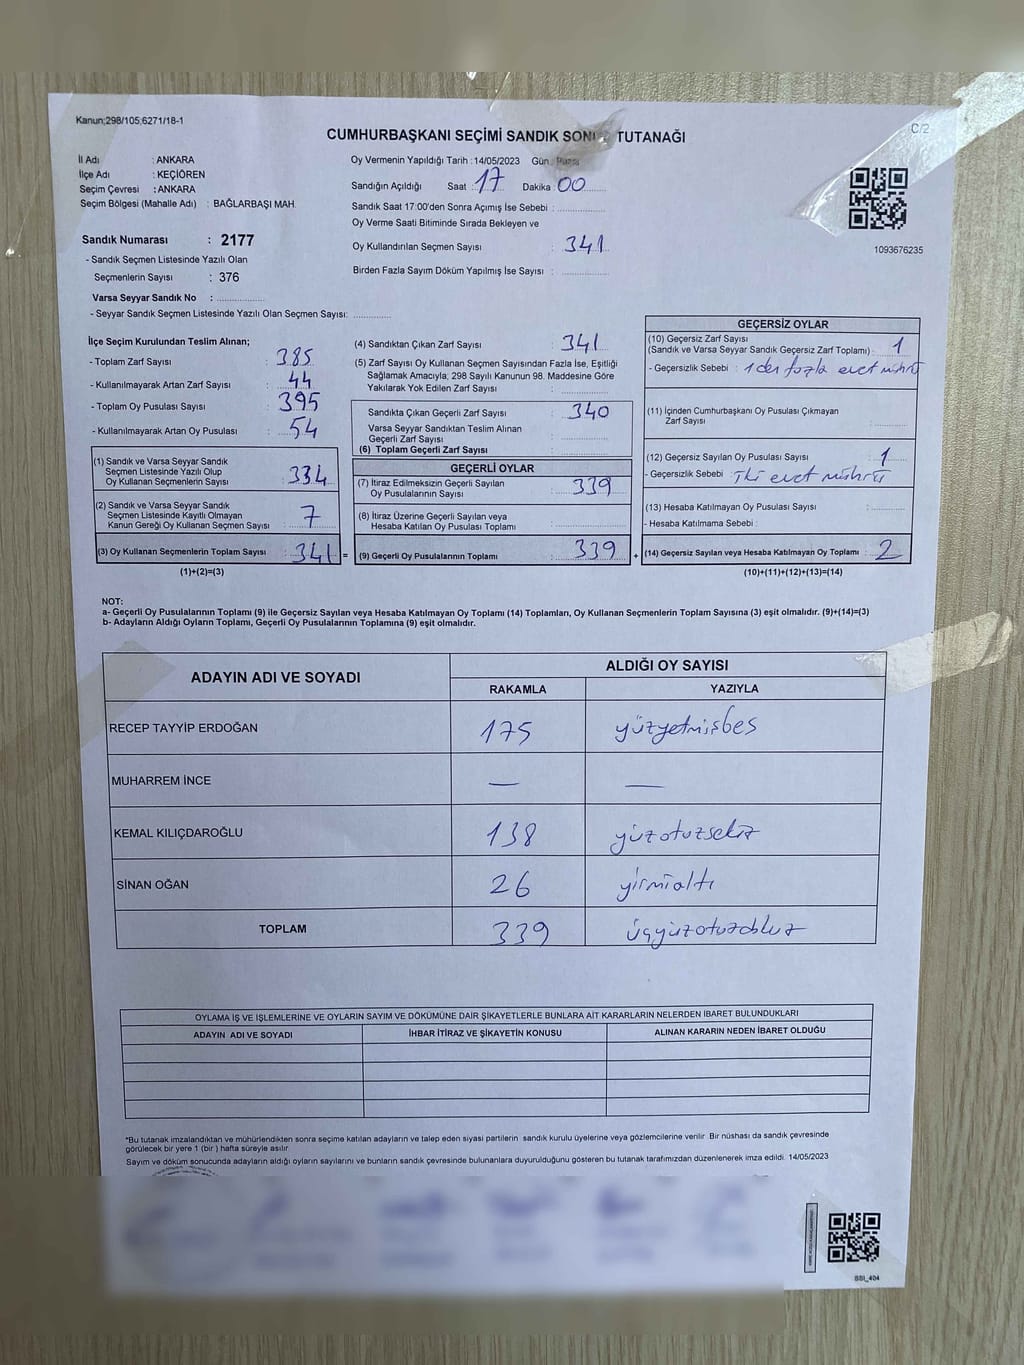 Kanun;298/105,6271/18-1
C/2
CUMHURBAŞKANI SEÇİMİ SANDIK TUTANAĞI
İl Adı : ANKARA
İlçe Adı : KEÇİÖREN
Seçim Çevresi : ANKARA
Seçim Bölgesi (Mahalle Adı) : BAĞLARBAŞI MAH.
Oy Vermenin Yapıldığı Tarih : 14/05/2023 Gün :
Sandığın Açıldığı Saat : 17 Dakika 00
Sandık Saat 17:00'den Sonra Açımış İse Sebebi :
Oy Verme Saati Bitiminde Sırada Bekleyen ve
Oy Kullandırılan Seçmen Sayısı : 341
Birden Fazla Sayım Döküm Yapılmış İse Sayısı :
1093676235
Sandık Numarası : 2177
- Sandık Seçmen Listesinde Yazılı Olan
Seçmenlerin Sayısı : 376
Varsa Seyyar Sandık No :
- Seyyar Sandık Seçmen Listesinde Yazılı Olan Seçmen Sayısı:
İlçe Seçim Kurulundan Teslim Alınan;
- Toplam Zarf Sayısı : 385
- Kullanılmayarak Artan Zarf Sayısı : 44
- Toplam Oy Pusulası Sayısı : 395
- Kullanılmayarak Artan Oy Pusulası : 54
(1) Sandık ve Varsa Seyyar Sandık
Seçmen Listesinde Yazılı Olup
Oy Kullanan Seçmenlerin Sayısı : 334
(2) Sandık ve Varsa Seyyar Sandık
Seçmen Listesinde Kayıtlı Olmayan
Kanun Gereği Oy Kullanan Seçmen Sayısı : 7
(3) Oy Kullanan Seçmenlerin Toplam Sayısı : 341 =
(1)+(2)=(3)
(4) Sandıktan Çıkan Zarf Sayısı : 341
(5) Zarf Sayısı Oy Kullanan Seçmen Sayısından Fazla İse, Eşitliği
Sağlamak Amacıyla; 298 Sayılı Kanunun 98. Maddesine Göre
Yakılarak Yok Edilen Zarf Sayısı :
Sandıkta Çıkan Geçerli Zarf Sayısı : 340
Varsa Seyyar Sandıktan Teslim Alınan
Geçerli Zarf Sayısı :
(6) Toplam Geçerli Zarf Sayısı :
GEÇERLİ OYLAR
(7) İtiraz Edilmeksizin Geçerli Sayılan
Oy Pusulalarının Sayısı : 339
(8) İtiraz Üzerine Geçerli Sayılan veya
Hesaba Katılan Oy Pusulası Toplamı :
(9) Geçerli Oy Pusulalarının Toplamı : 339 +
GEÇERSİZ OYLAR
(10) Geçersiz Zarf Sayısı
(Sandık ve Varsa Seyyar Sandık Geçersiz Zarf Toplamı) : 1
- Geçersizlik Sebebi : 1 den fazla evet mührü
(11) İçinden Cumhurbaşkanı Oy Pusulası Çıkmayan
Zarf Sayısı :
(12) Geçersiz Sayılan Oy Pusulası Sayısı : 1
- Geçersizlik Sebebi : iki evet mührü
(13) Hesaba Katılmayan Oy Pusulası Sayısı :
- Hesaba Katılmama Sebebi :
(14) Geçersiz Sayılan veya Hesaba Katılmayan Oy Toplamı : 2
(10)+(11)+(12)+(13)=(14)
NOT:
a- Geçerli Oy Pusulalarının Toplamı (9) ile Geçersiz Sayılan veya Hesaba Katılmayan Oy Toplamı (14) Toplamları, Oy Kullanan Seçmenlerin Toplam Sayısına (3) eşit olmalıdır. (9)+(14)=(3)
b- Adayların Aldığı Oyların Toplamı, Geçerli Oy Pusulalarının Toplamına (9) eşit olmalıdır.
ADAYIN ADI VE SOYADI
ALDIĞI OY SAYISI
RAKAMLA YAZIYLA
RECEP TAYYİP ERDOĞAN 175 yüzyetmişbes
MUHARREM İNCE — —
KEMAL KILIÇDAROĞLU 138 yüzotuzsekiz
SİNAN OĞAN 26 yirmialtı
TOPLAM 339 üçyüzotuzdokuz
OYLAMA İŞ VE İŞLEMLERİNE VE OYLARIN SAYIM VE DÖKÜMÜNE DAİR ŞİKAYETLERLE BUNLARA AİT KARARLARIN NELERDEN İBARET BULUNDUKLARI
ADAYIN ADI VE SOYADI İHBAR İTİRAZ VE ŞİKAYETİN KONUSU ALINAN KARARIN NEDEN İBARET OLDUĞU
*Bu tutanak imzalandıktan ve mühürlendikten sonra seçime katılan adayların ve talep eden siyasi partilerin sandık kurulu üyelerine veya gözlemcilerine verilir. Bir nüshası da sandık çevresinde
görülecek bir yere 1 (bir) hafta süreyle asılır.
Sayım ve döküm sonucunda adayların aldığı oyların sayılarını ve bunların sandık çevresinde bulunanlara duyurulduğunu gösteren bu tutanak tarafımızdan düzenlenerek imza edildi. 14/05/2023
BBI_404